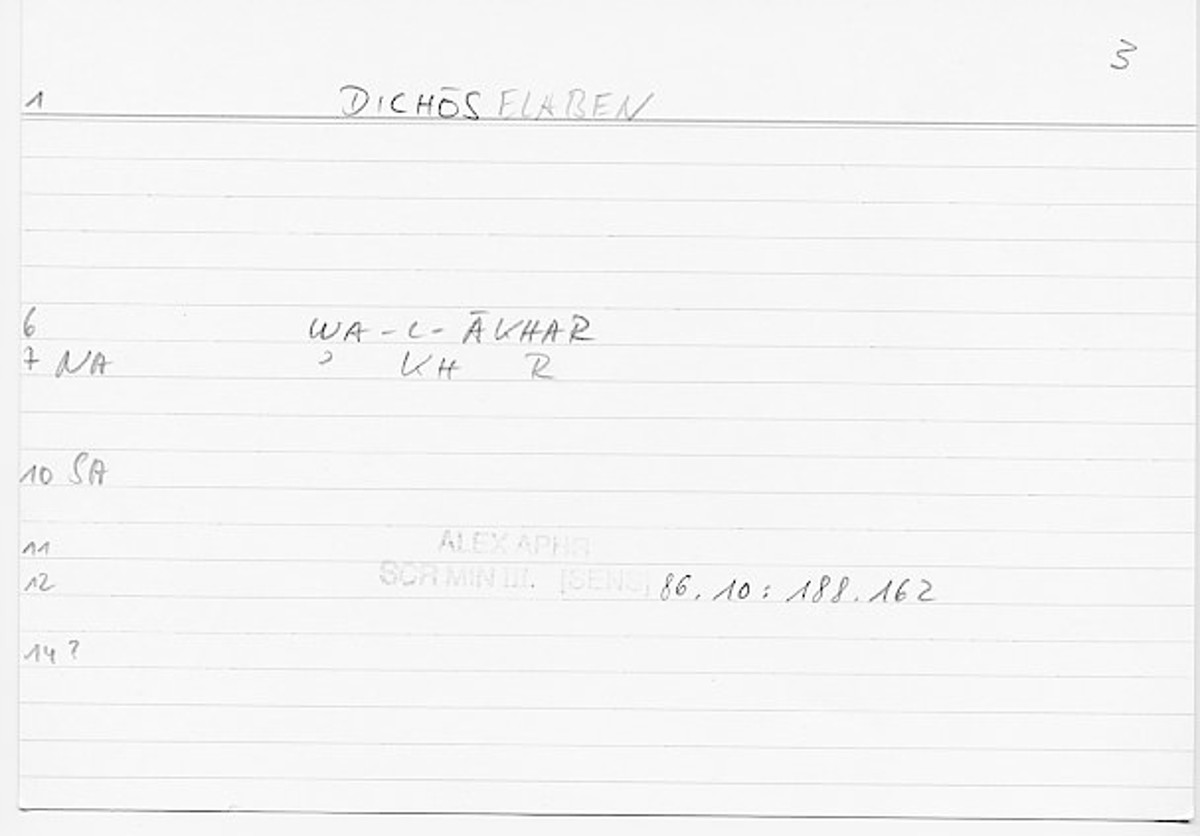 3
1 DICHŌS ELABEN
6 WA-L-ĀKHAR
7 NA ʾ KH R
10 SA
11 ALEX APHR
12 SCR MIN III. [SENS] 86.10: 188.162
14?